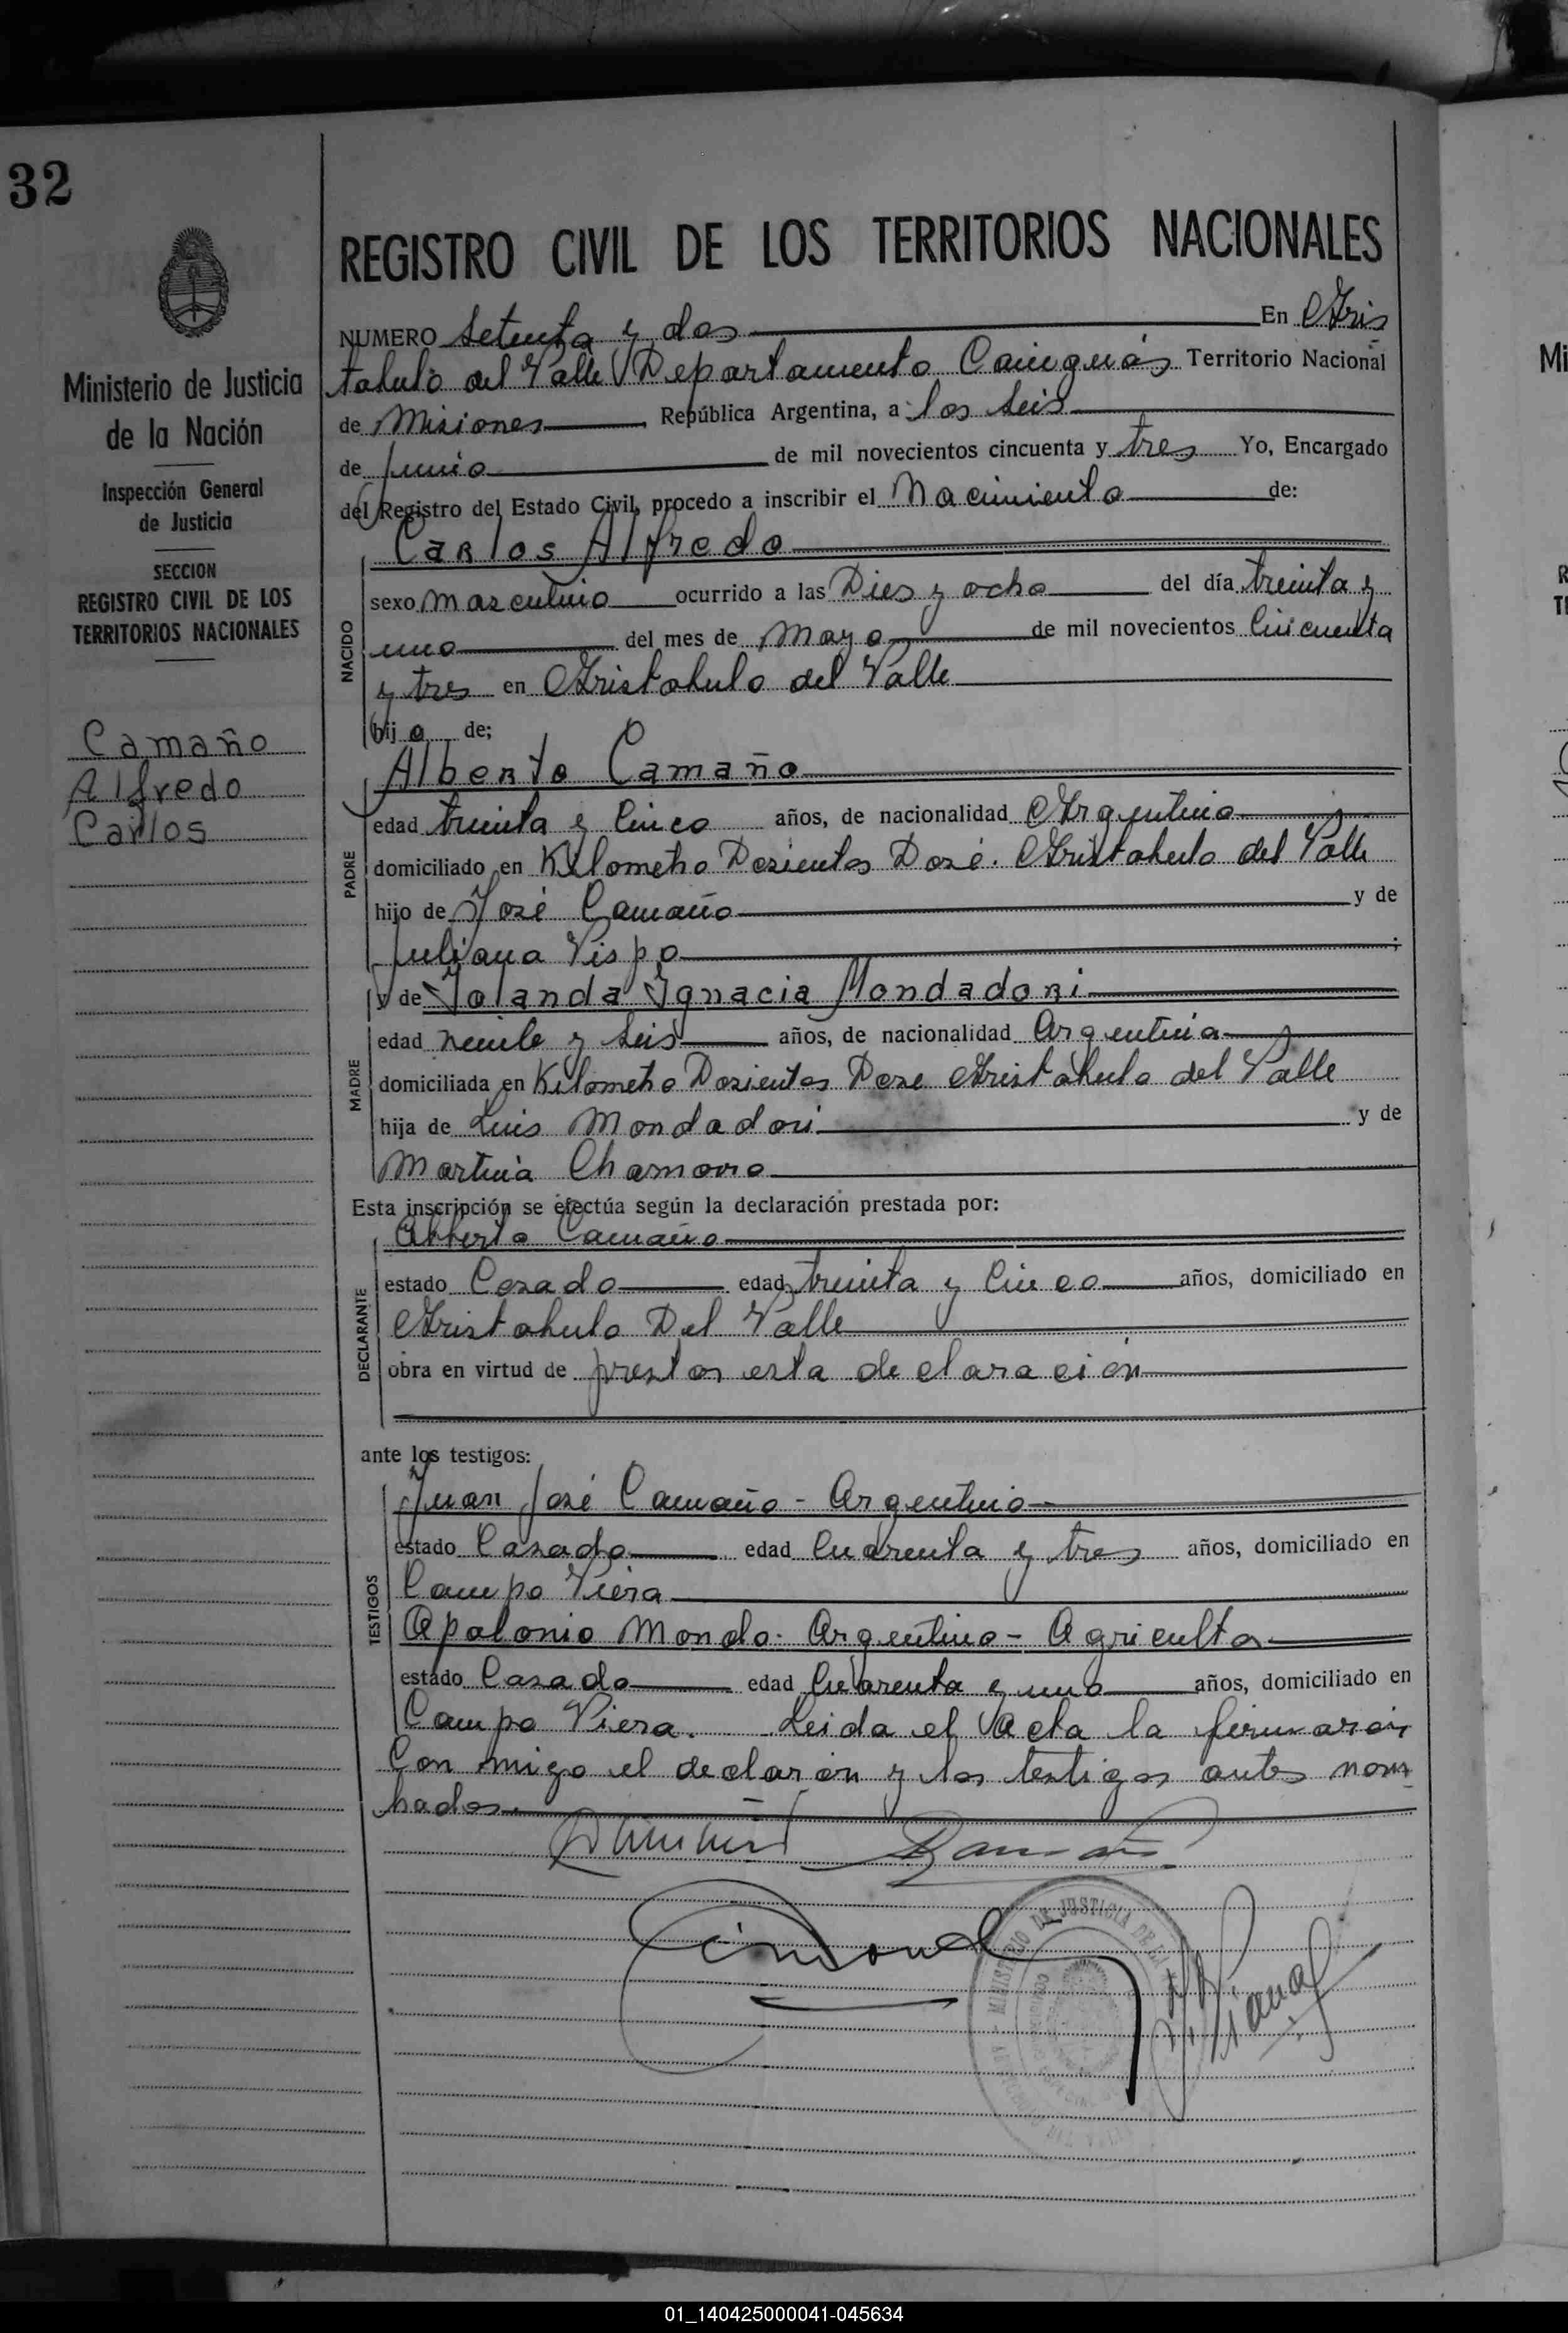 32
Ministerio de Justicia
de la Nación
Inspección General
de Justicia
SECCION
REGISTRO CIVIL DE LOS
TERRITORIOS NACIONALES
Camaño
Alfredo
Carlos
REGISTRO CIVIL DE LOS TERRITORIOS NACIONALES
NUMERO Setenta y dos En Aris
tabulo del Valle Departamento Cainguás Territorio Nacional
de Misiones República Argentina, a los Seis
de Junio de mil novecientos cincuenta y tres Yo, Encargado
del Registro del Estado Civil, procedo a inscribir el Nacimiento de:
Carlos Alfredo
NACIDO
sexo masculino ocurrido a las Dies y ocho del día treinta y
uno del mes de Mayo de mil novecientos Cincuenta
y tres en Aristobulo del Valle
hijo de;
Alberto Camaño
PADRE
edad treinta y Cinco años, de nacionalidad Argentino
domiciliado en Kilometro Dosientos Dosé. Aristobulo del Valle
hijo de José Camaño y de
Juliana Vispo ;
y de Yolanda Ygnacia Mondadori
MADRE
edad veinte y seis años, de nacionalidad Argentina
domiciliada en Kilometro Dosientos Dose Aristobulo del Valle
hija de Luis Mondadori y de
Martina Chamorro
Esta inscripción se efectúa según la declaración prestada por:
Alberto Camaño
DECLARANTE
estado Casado edad treinta y Cinco años, domiciliado en
Aristobulo Del Valle
obra en virtud de prestar esta declaración
ante los testigos:
Juan José Camaño - Argentino
TESTIGOS
estado Casado edad Cuarenta y tres años, domiciliado en
Campo Viera
Apolonio Mondo. Argentino - Agriculto
estado Casado edad Cuarenta y uno años, domiciliado en
Campo Viera. Leida el Acta la firmaron
Con migo el declaron y los testigos antes nom
bados.
MINISTERIO DE JUSTICIA DE LA
01_140425000041-045634